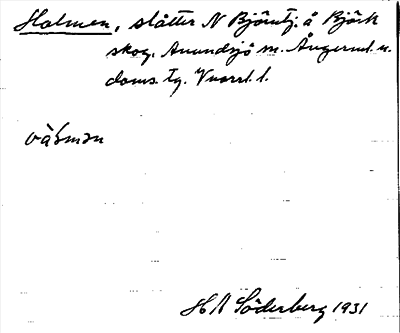 Holmen, slåtter N Björntj. å Björk
skog. Anundsjö sn. Ångermanl. n.
doms. tg. Vnorrl. l.
H A Söderberg 1931